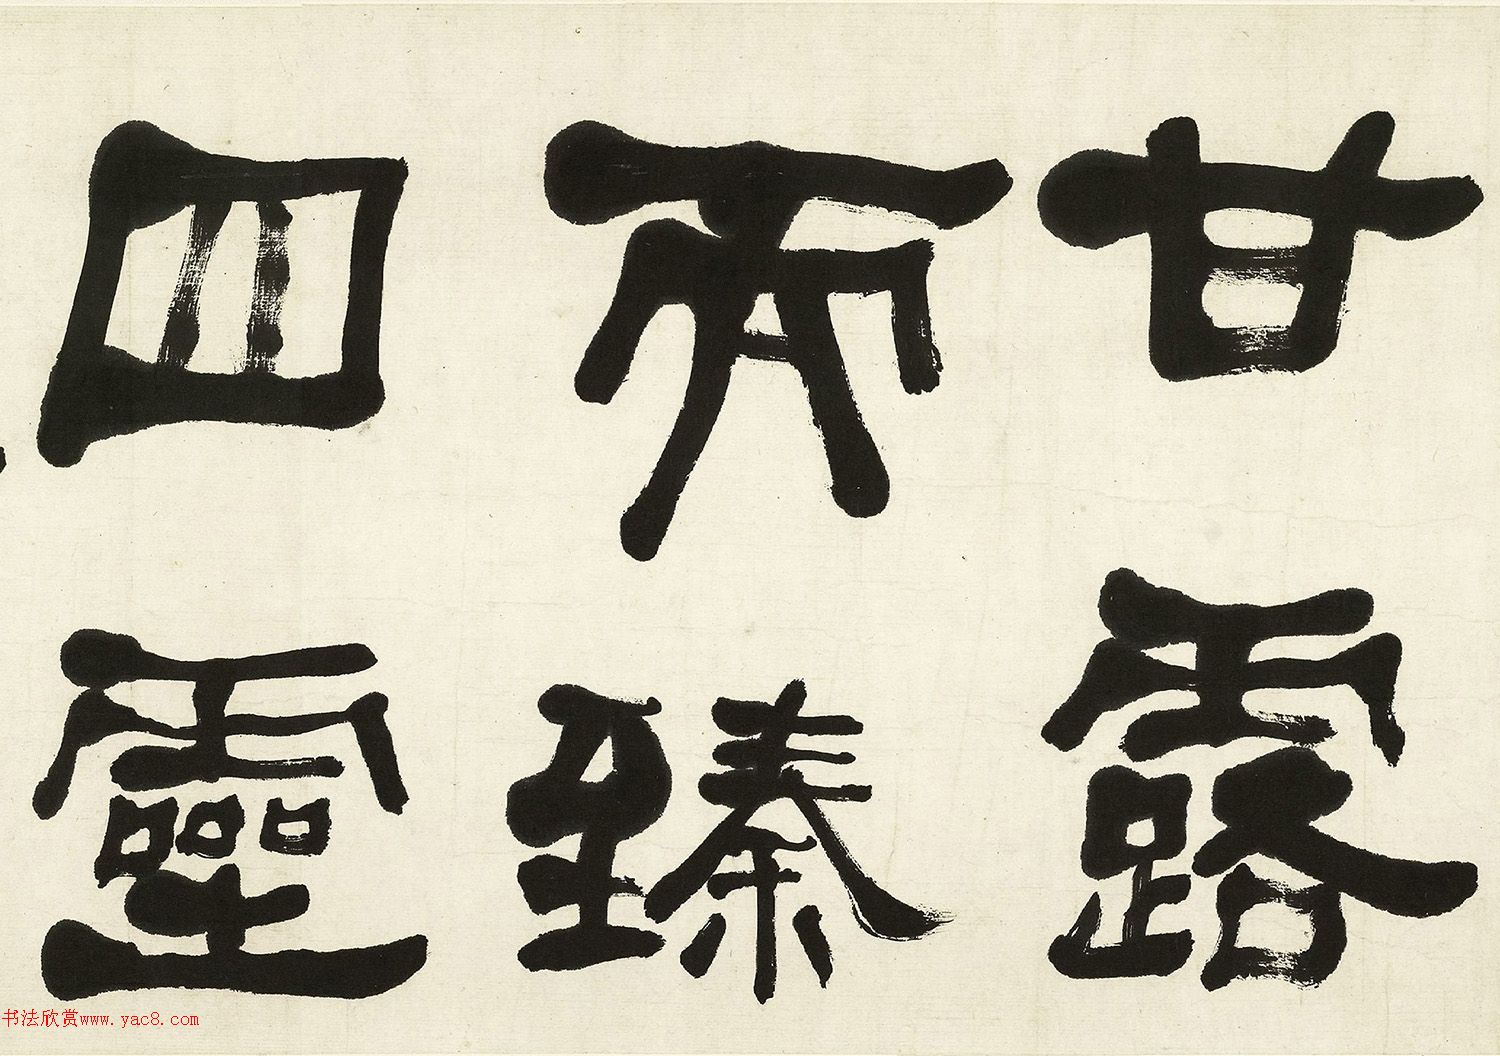 甘露
而臻
四靈
书法欣赏www.yac8.com